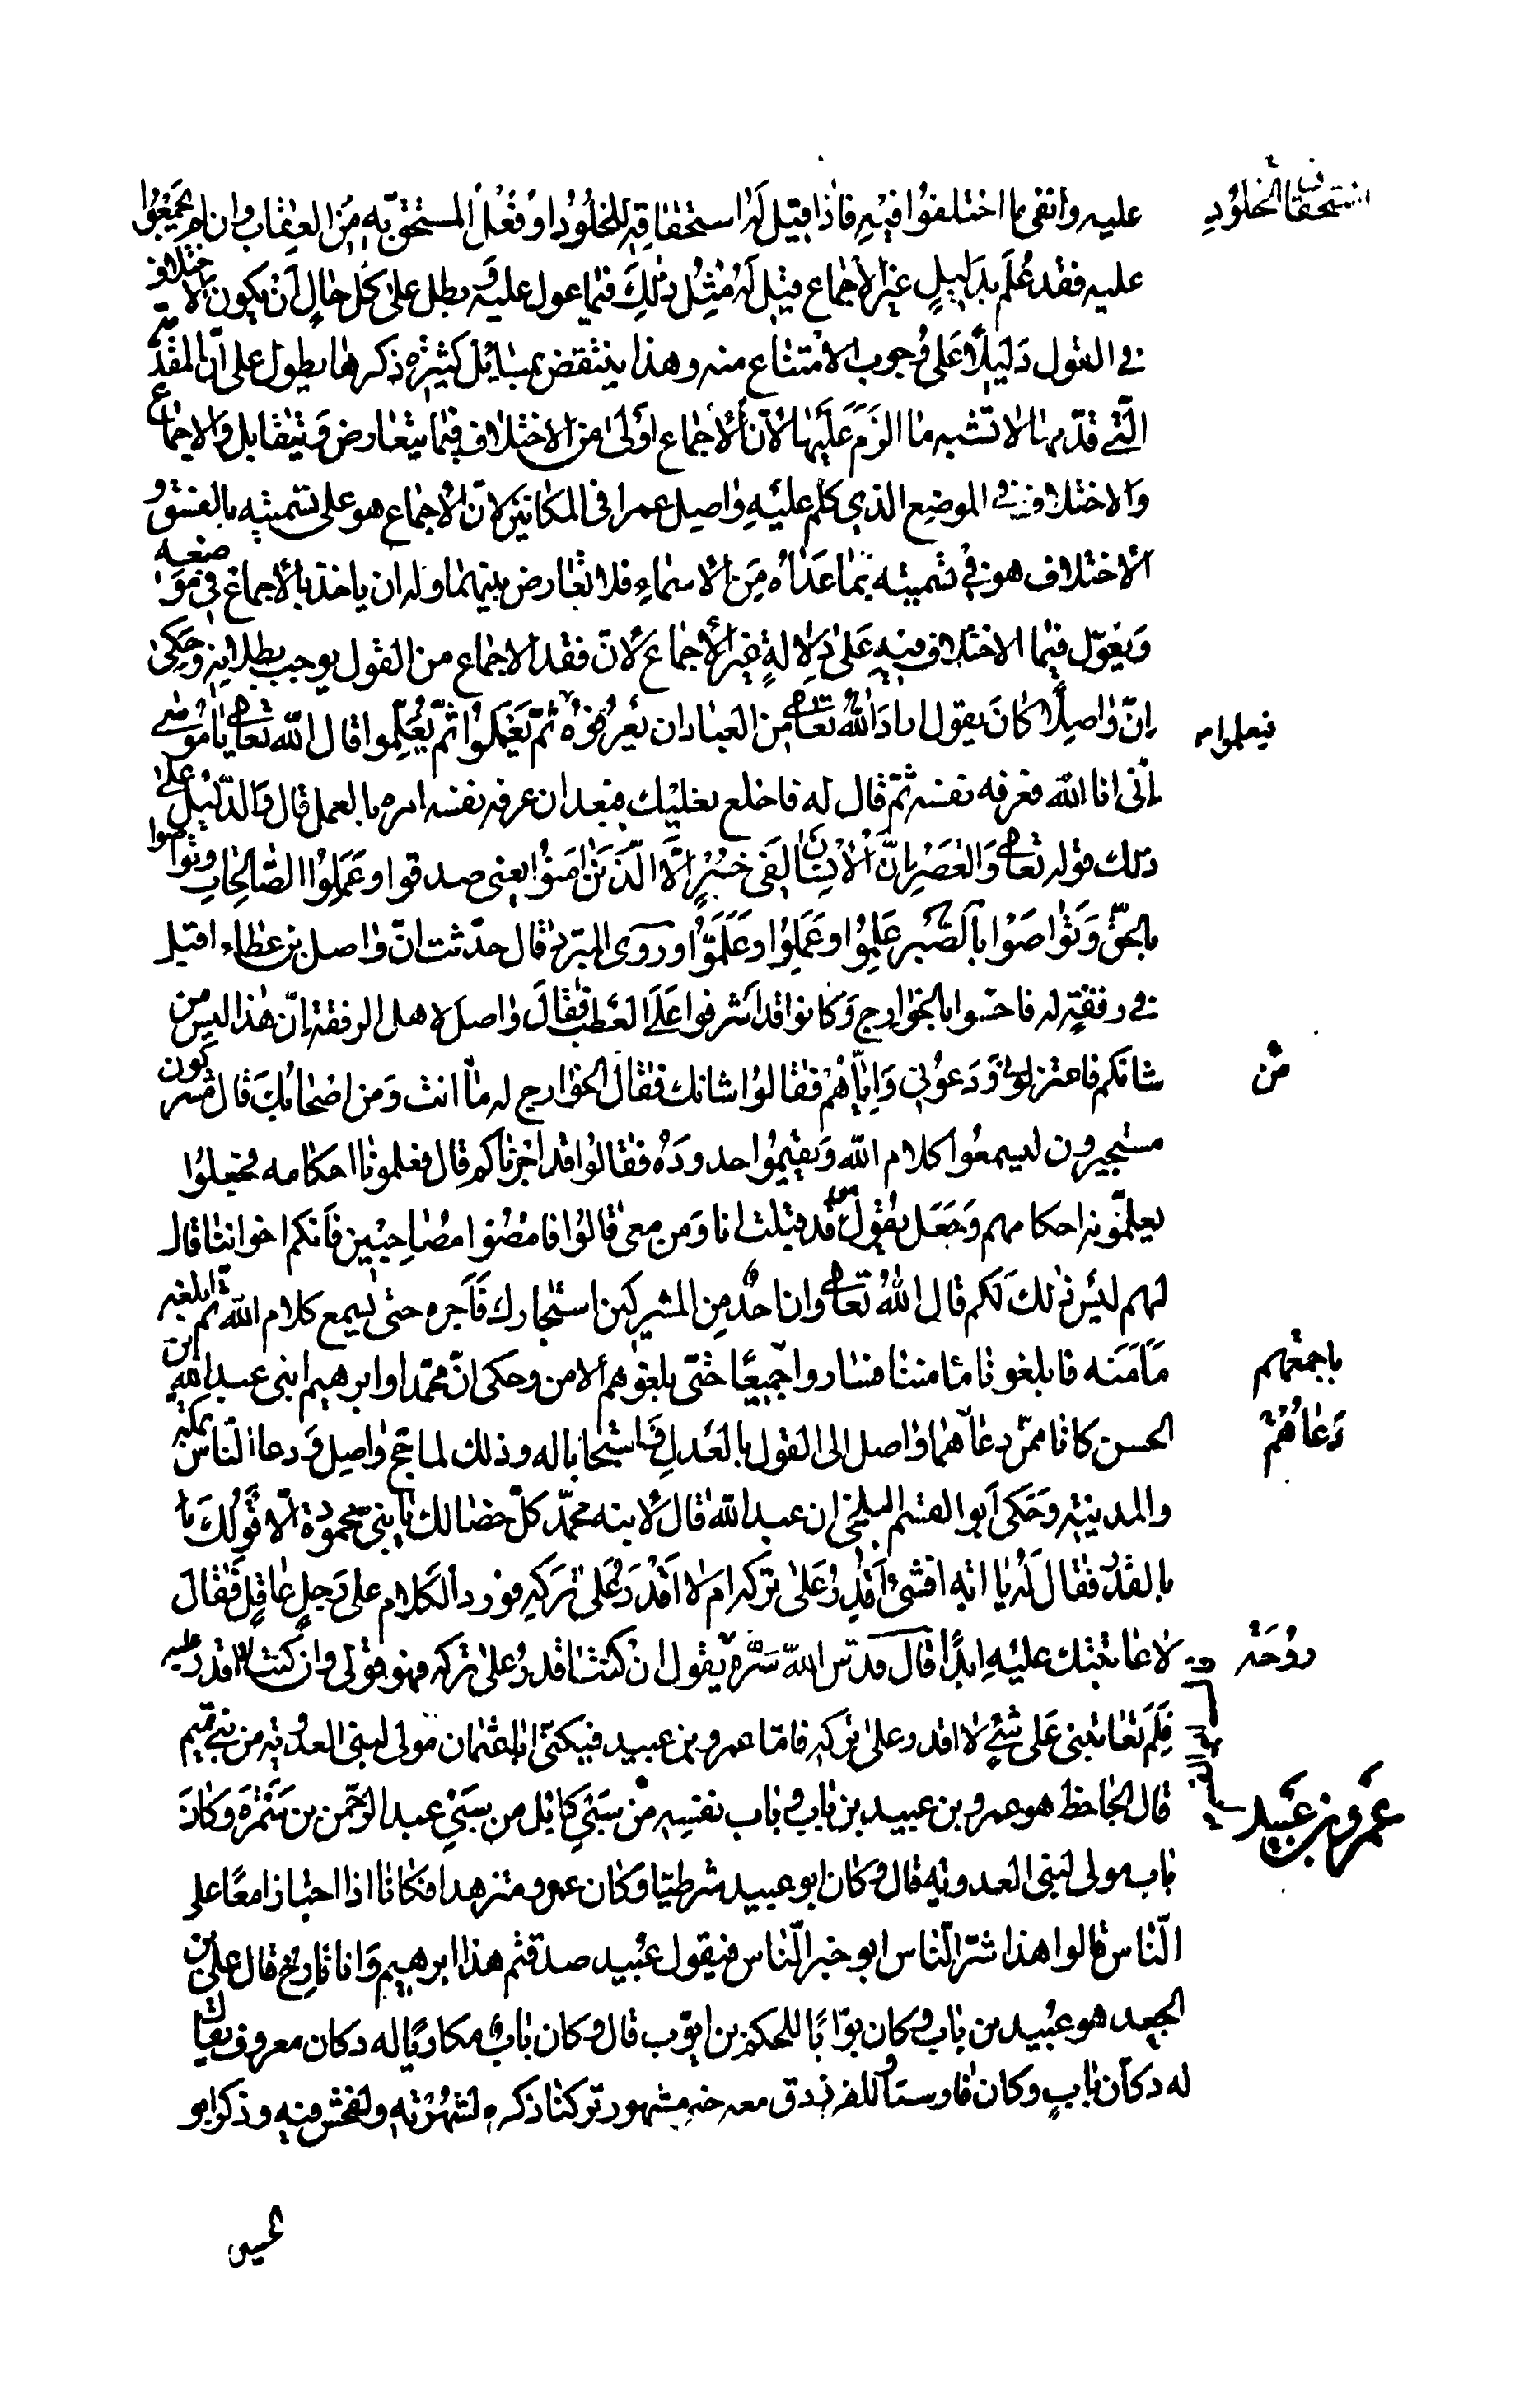 عليه وانفى ما اختلفوا فيه فاذا قيل له استحقاقه للخلود او فعل المستحق به من العقاب وان لم يجمعوا
استحقاق الخلود
عليه فقد علم بدليل غير الاجماع قيل له مثل ذلك فيما عول عليه وبطل على كل حال ان يكون الاختلاف
في القول دليلا على وجوب الامتناع منه وهذا ينتقض بمسايل كثيرة ذكرها يطول على ان المقدمة
التي قدمها لا تشبه ما الزم عليها لان الاجماع اولى من الاختلاف فيما يتعارض ويتقابل والاجماع
والاختلاف في الموضع الذي كلم عليه واصل عمرا في المكانين لان الاجماع هو على تسميته بالفسق و
الاختلاف هو في تسميته بما عداه من الاسماء فلا تعارض بينهما وله ان ياخذ بالاجماع في موضعه
ويعول فيما الاختلاف فيه على دلالة غير الاجماع لان فقد الاجماع من القول يوجب بطلانه وحكى
ان واصلا كان يقول اراد الله تعالى من العباد ان يعرفوه ثم يعملوا ثم يعلموا قال الله تعالى يا موسى
فيعلموا
اني انا الله فعرفه نفسه ثم قال له فاخلع نعليك فبعد ان عرفه نفسه امره بالعمل قال والدليل على
ذلك قوله تعالى والعصر ان الانسان لفى خسر الا الذين امنوا يعنى صدقوا وعملوا الصالحات وتواصوا
بالحق وتواصوا بالصبر علموا وعملوا وعلموا وروى المبرد قال حدثت ان واصل بن عطاء اقبل
في رفقة له فاحسوا بالخوارج وكانوا قد اشرفوا على العطب فقال واصل لاهل الرفقة ان هذا ليس من
شانكم فاعتزلوا ودعوني واياهم فقالوا شانك فقال الخوارج له ما انت ومن اصحابك قال مشركون
من
مستجيرون ليسمعوا كلام الله ويقيموا حدوده فقالوا قد اجرناكم قال فعلمونا احكامه فجعلوا
يعلمونه احكامهم وجعل يقول قد قبلت انا ومن معى قالوا فامضوا مصاحبين فانكم اخواننا قال
لهم ليس ذلك لكم قال الله تعالى وان احد من المشركين استجارك فاجره حتى يسمع كلام الله ثم ابلغه
مامنه فابلغونا مامننا فساروا جميعا حتى بلغوهم الامن وحكى ان محمدا وابرهيم ابنى عبد الله بن
باجمعهم
الحسن كانا ممن دعاهما واصل الى القول بالعدل فاستجابا له وذلك لما حج واصل ودعا الناس بمكة
دعاهم
والمدينة وحكى ابو القسم البلخي ان عبد الله قال لابنه محمد كل خصالك يا بني محمودة الا قولك يا
بالقدر فقال له يا ابه افشئ اقدر على تركه ام لا اقدر على تركه فورد الكلام على رجل عاقل فقال
لا عاتبتك عليه ابدا قال قدس الله سره يقول ان كنت اقدر على تركه فهو قولى وان كنت لا اقدر عليه
روحه
فلم تعاتبنى على شئ لا اقدر على تركه فاما عمرو بن عبيد فيكنى ابا عثمان مولى لبنى العدوية من بني تميم
قال الجاحظ هو عمرو بن عبيد بن باب وباب نفسه من سبى كابل من سبى عبد الرحمن بن سمرة وكان
عمرو بن عبيد
باب مولى لبنى العدوية قال وكان ابو عبيد شرطيا وكان عمرو متزهدا فكانا اذا اجتازا معا على
الناس قالوا هذا شر الناس ابو خير الناس فيقول عبيد صدقتم هذا ابرهيم وانا تارخ قال على بن
الجعد هو عبيد بن باب وكان بوابا للحكم بن ايوب قال وكان باب مكاريا له دكان معروف يقال
له دكان باب وكان فارسيا وللفرزدق معه خبر مشهور تركنا ذكره لشهرته ولفحش فيه وذكر ابو
الحسين